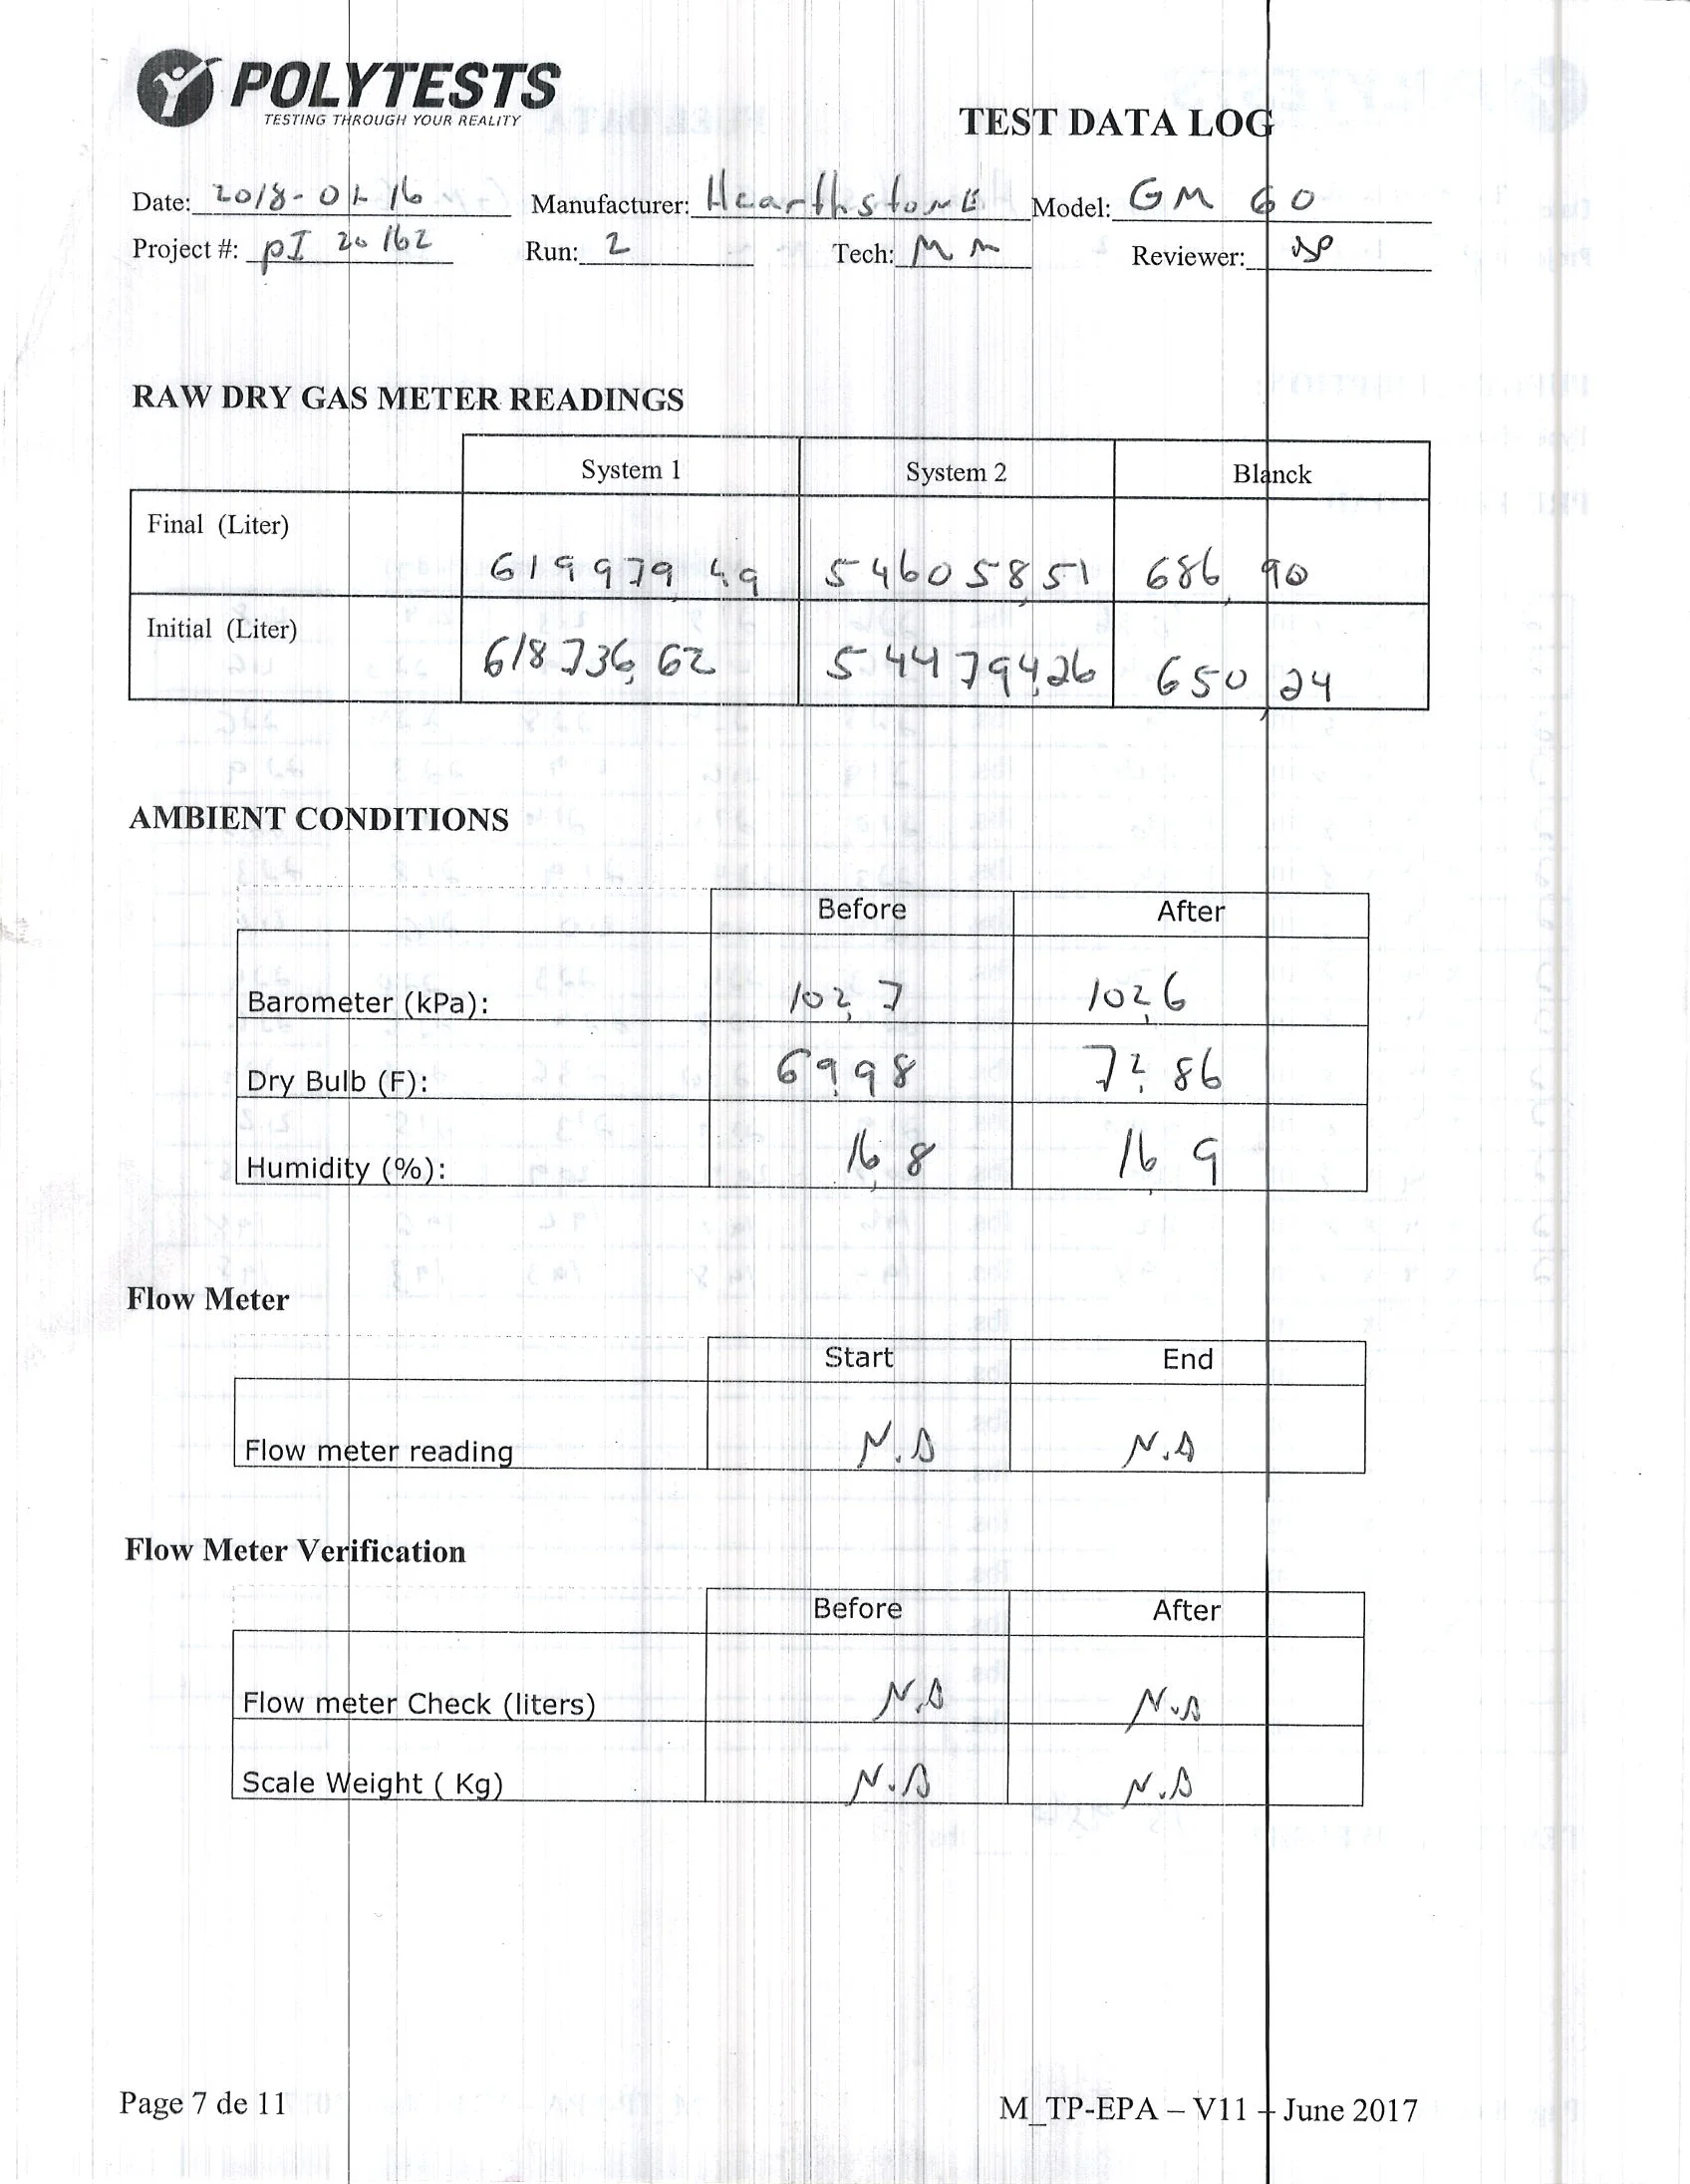 POLYTESTS
TESTING THROUGH YOUR REALITY
TEST DATA LOG
Date: 2018-01-16 Manufacturer: HearthstoNE Model: GM 60
Project #: pI 20162 Run: 2 Tech: MM Reviewer:
RAW DRY GAS METER READINGS
System 1 System 2 Blanck
Final (Liter) 619979,49 546058,51 686,90
Initial (Liter) 618736,62 544794,26 650,24
AMBIENT CONDITIONS
Before After
Barometer (kPa): 102,7 102,6
Dry Bulb (F): 69,98 72,86
Humidity (%): 16,8 16,9
Flow Meter
Start End
Flow meter reading N.A N.A
Flow Meter Verification
Before After
Flow meter Check (liters) N.A N.A
Scale Weight ( Kg) N.A N.A
Page 7 de 11 M_TP-EPA – V11 – June 2017